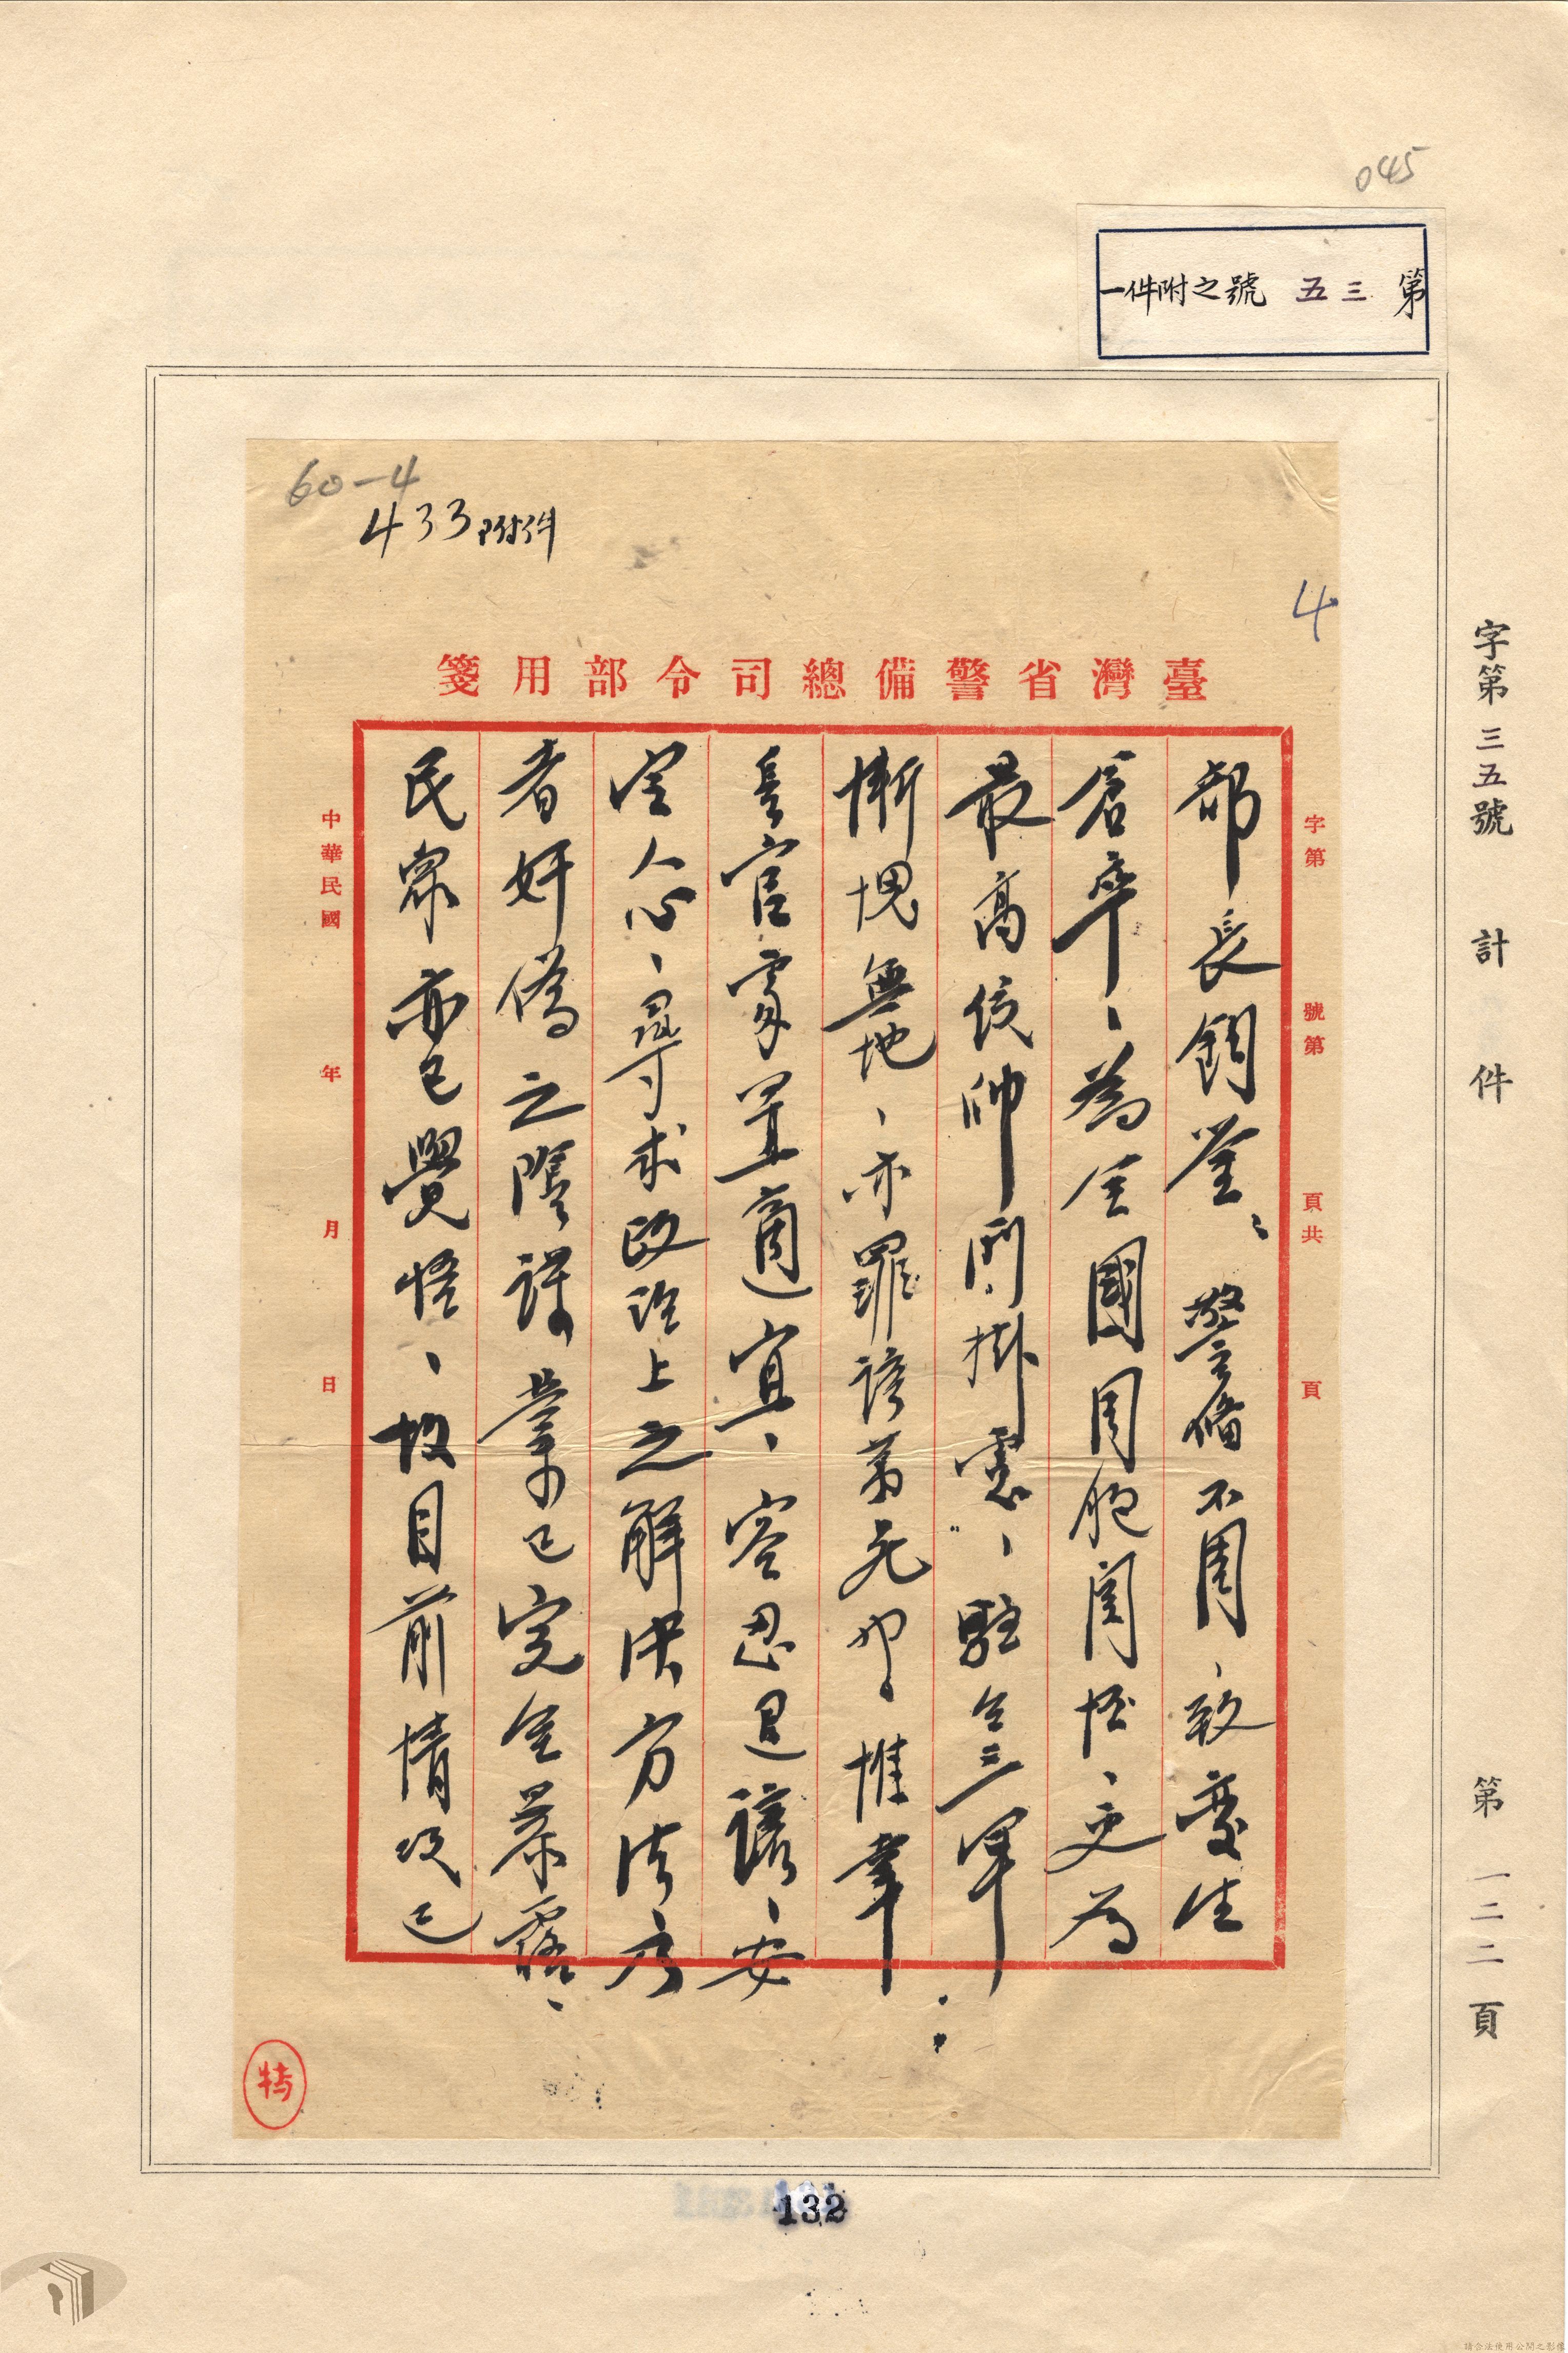 045
第三五號之附件一
60-4
433附件
4
臺灣省警備總司令部用箋
字第 號第 頁共 頁
部長鈞鑒、警備不周、致變生
倉卒、為全國同胞詬怪、更為
最高統帥関掛慮、駐台三軍
慚愧無地、亦罪該萬死也。惟幸
長官處置適宜、容忍退讓、安
定人心、尋求政治上之解決方法、
者奸偽之陰謀業已完全暴露、
民眾亦已覺悟、故目前情況已
中華民國 年 月 日
特
字第三五號 計 件
第一二二頁
132
請合法使用公開之影像